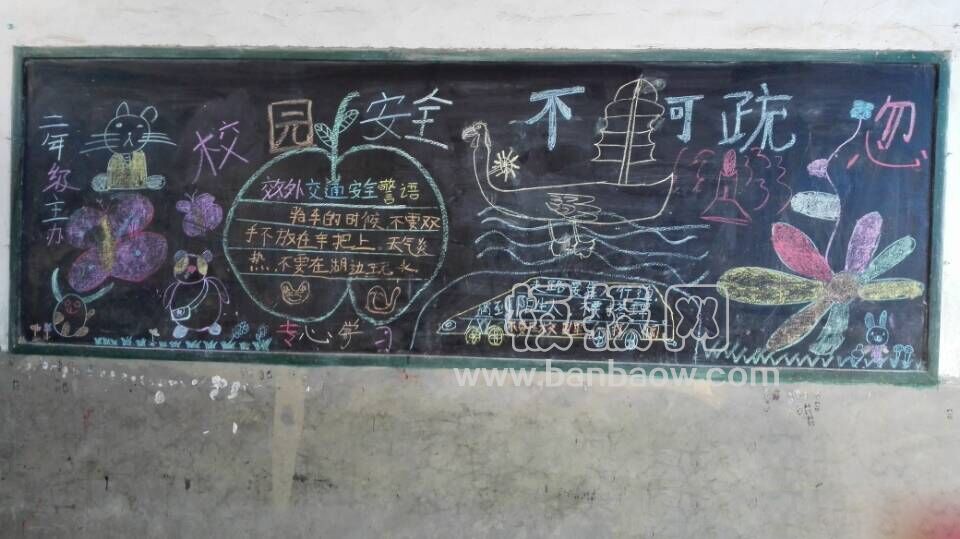 校园安全不可疏忽
二年级主办
效外交通安全警语
的时候,不要双
手不放在车把上.天气炎
热,不要在湖边玩水
专心学习
遇到陌生
板报网
www.banbaow.com